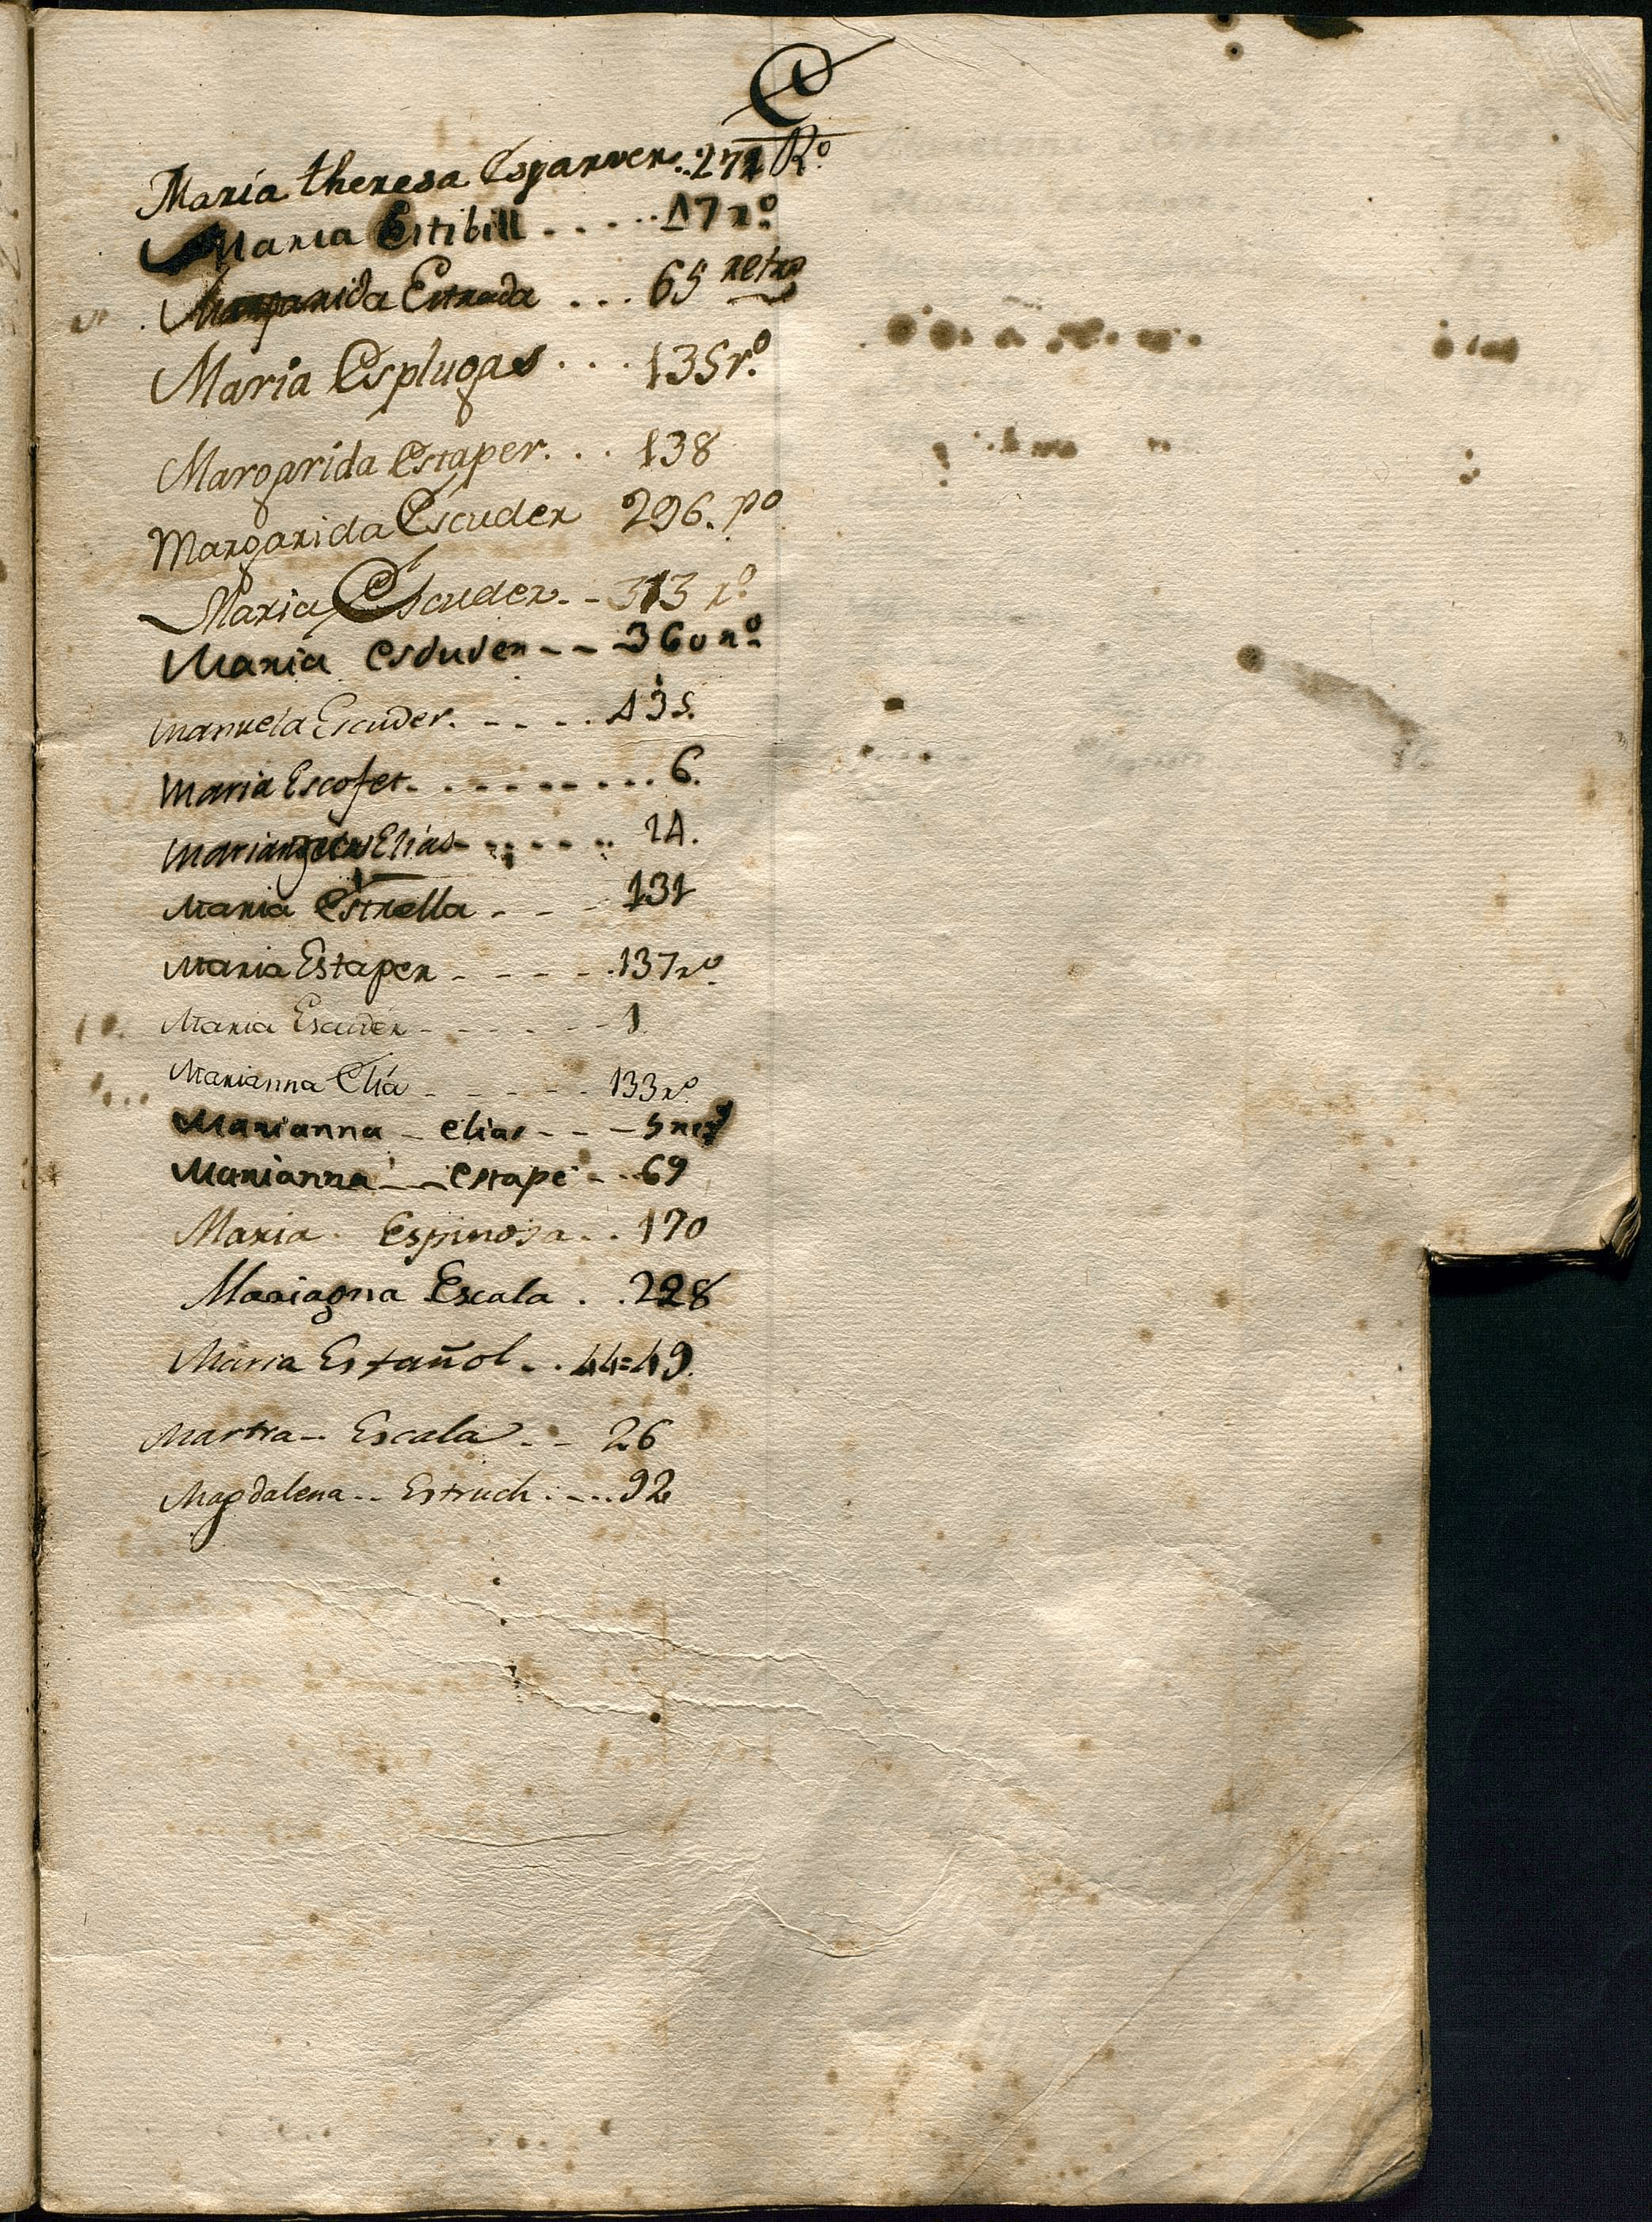 E
Maria theresa Esparver..271 Rº
Maria Estibill . . . . . 17 rº
Margarida Estrada . . . 65 retro
Maria Esplugas . . . 135 rº
Margarida Estaper. . . 138
Margarida Escuder 296. pº
Maria Escuder - - 313 rº
Maria Escuder - - 360 rº
Manuela Escuder. - - - . 135.
Maria Escofet. . - - - - - . . 6.
Elias - - - - - . . 14.
Maria Estrella - - - 131
Maria Estaper - - - - .137 rº
Maria Escuder - - - - - 1
Marianna Elia - - - - - 133 rº
Marianna - elias - - - 5
Marianna - estape - . . 69
Maria Espinosa . . 170
Mariagna Escala . . 228
Maria Estañol - . 44=49.
Martra - - Escala - - 26
Magdalena - - Estruch . - . . 92